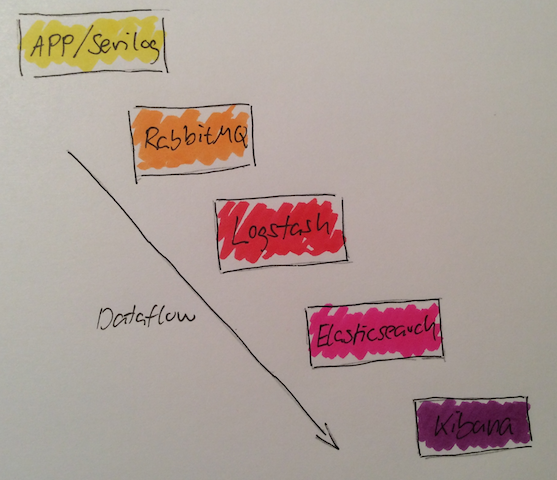 APP/Serilog
RabbitMQ
Logstash
Dataflow
Elasticsearch
Kibana